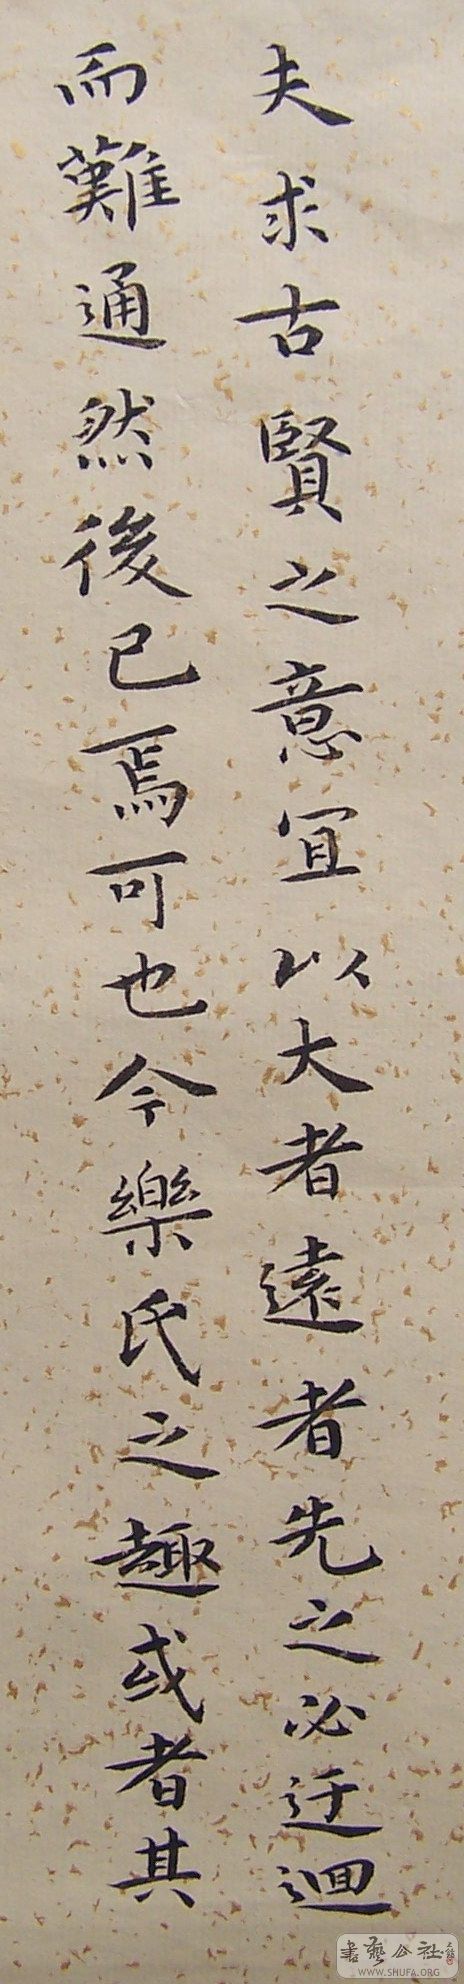 夫求古賢之意宜以大者遠者先之必迂迴
而難通然後已焉可也今樂氏之趣或者其
書藝公社
WWW.SHUFA.ORG